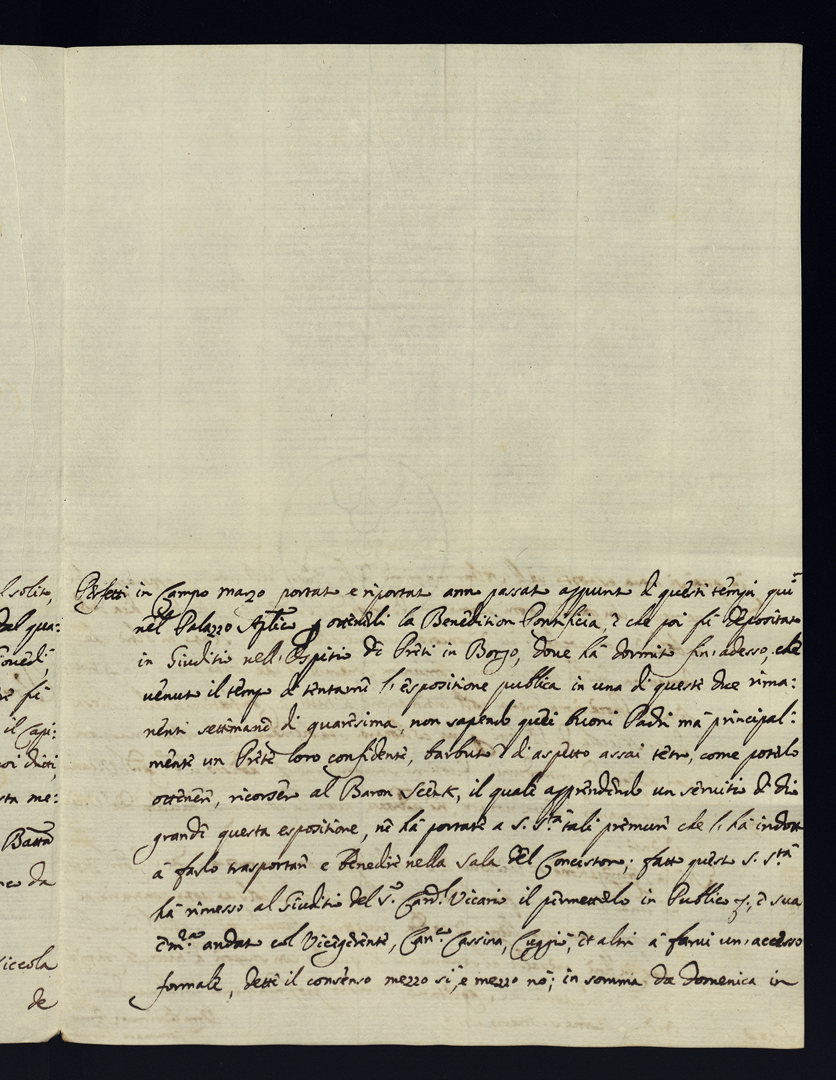 l solito,
dal qua:
Giovedi,
re fu
il Capi:
poi dicti,
sta me:
Batta
nco da
iccola
de
Perfetti in Campo marzo portato e riportato anno passato appunto di questi tempi qui
nel Palazzo Aplico p ottenerli la Benedition Pontificia, e che poi fù depositato
in Giuditio nell'Ospitio de Preti in Borgo, dove hà dormito fin'adesso, che
venuto il tempo di tentarne l'espositione publica in una di queste due rima:
nenti settimane di quaresima, non sapendo quei buoni Padri mà principal:
mente un Prete loro confidente, barbuto e di aspetto assai tetro, come poterlo
ottenere, ricorsero al Baron Scenk, il quale apprendendo un servitio di dio
grande questa espositione, nè hà portate a S. Stà tali premure che l'hà indotto
à farlo trasportare e benedire nella sala del Concistoro; fatto questo S. Stà
hà rimesso al Giuditio del S.r Card.l Vicario il permetterlo in Publico, e sua
Em.za andato col Vicegerente, Can.co Cassina, Cuggiò, et altri à farvi un'accesso
formale, dette il consenso mezzo sì, e mezzo nò; in somma da domenica in